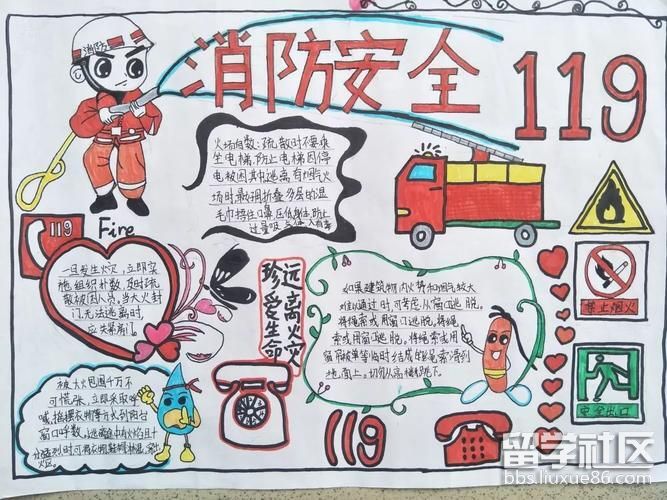 消防
消防安全
119
火场自救:疏散时不要乘
坐电梯,防止电梯因停
电被困其中逃离有烟气火
场时最好用折叠多层的温
毛巾捂住口鼻
119
Fire
一旦发生火灾,立即实
施组织扑救,及时疏
散被困人员,当大火封
门无法逃离时,
珍爱生命
远离火灾
如果建筑物内火势和烟气较大
难以通过时,可考虑从窗口逃脱。
将绳索或用窗口逃脱,将绳
索或用窗口逃脱。将绳索或用
窗帘被单等临时结成的绳索滑到
地面上。切勿从高楼跳下。
禁止烟火
安全出口
被大火包围千万不
可慌张,立即采取呼
喊,摇摆衣物等方式到阳台
窗口呼救
火灾。
119
留学社区
bbs.liuxue86.com